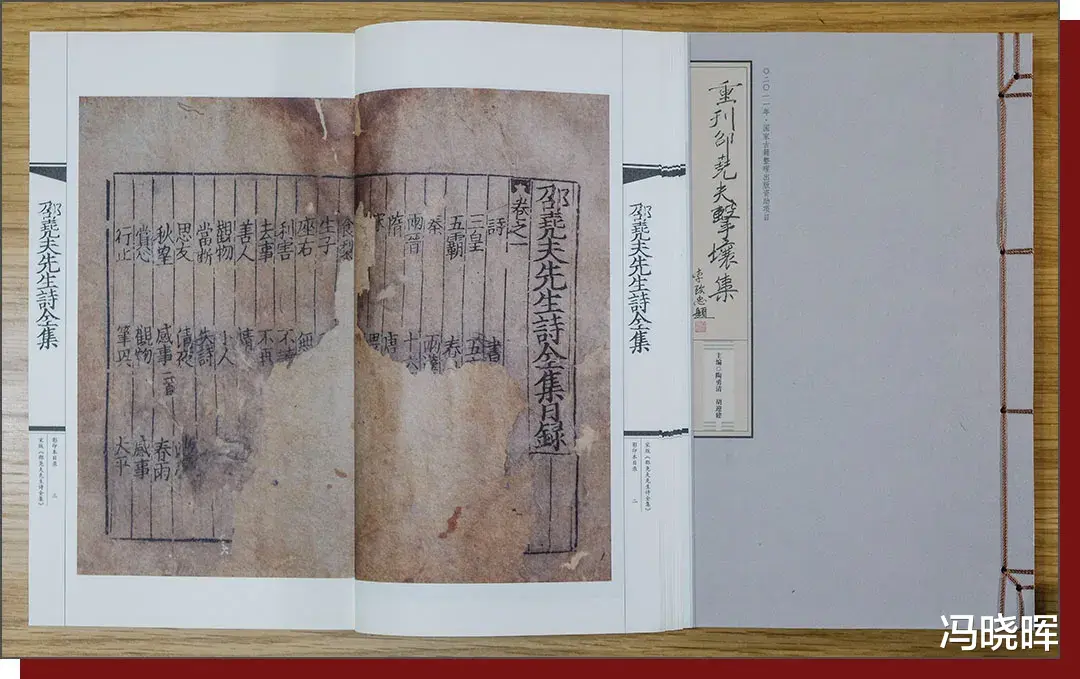 〇二〇一一年·国家古籍整理出版资助项目
重刊邵堯夫擊壤集
李致忠題
主编〇陶勇清 胡迎建
邵堯夫先生詩全集
宋版《邵堯夫先生诗全集》
影印本目录 二
邵堯夫先生詩全集目録
卷之一
詩 書
三皇 五
五霸 春
秦 兩漢
兩晉 十六
隋 唐
生子
座右 不
利害 不再
去事 情
善人 小人
觀物 失詩
當斷 清夜
思友 感事二首 春雨
秋望 觀物 感事
賞心 筆興 太平
行止
邵堯夫先生詩全集
影印本目录 三
宋版《邵堯夫先生诗全集》
冯晓晖